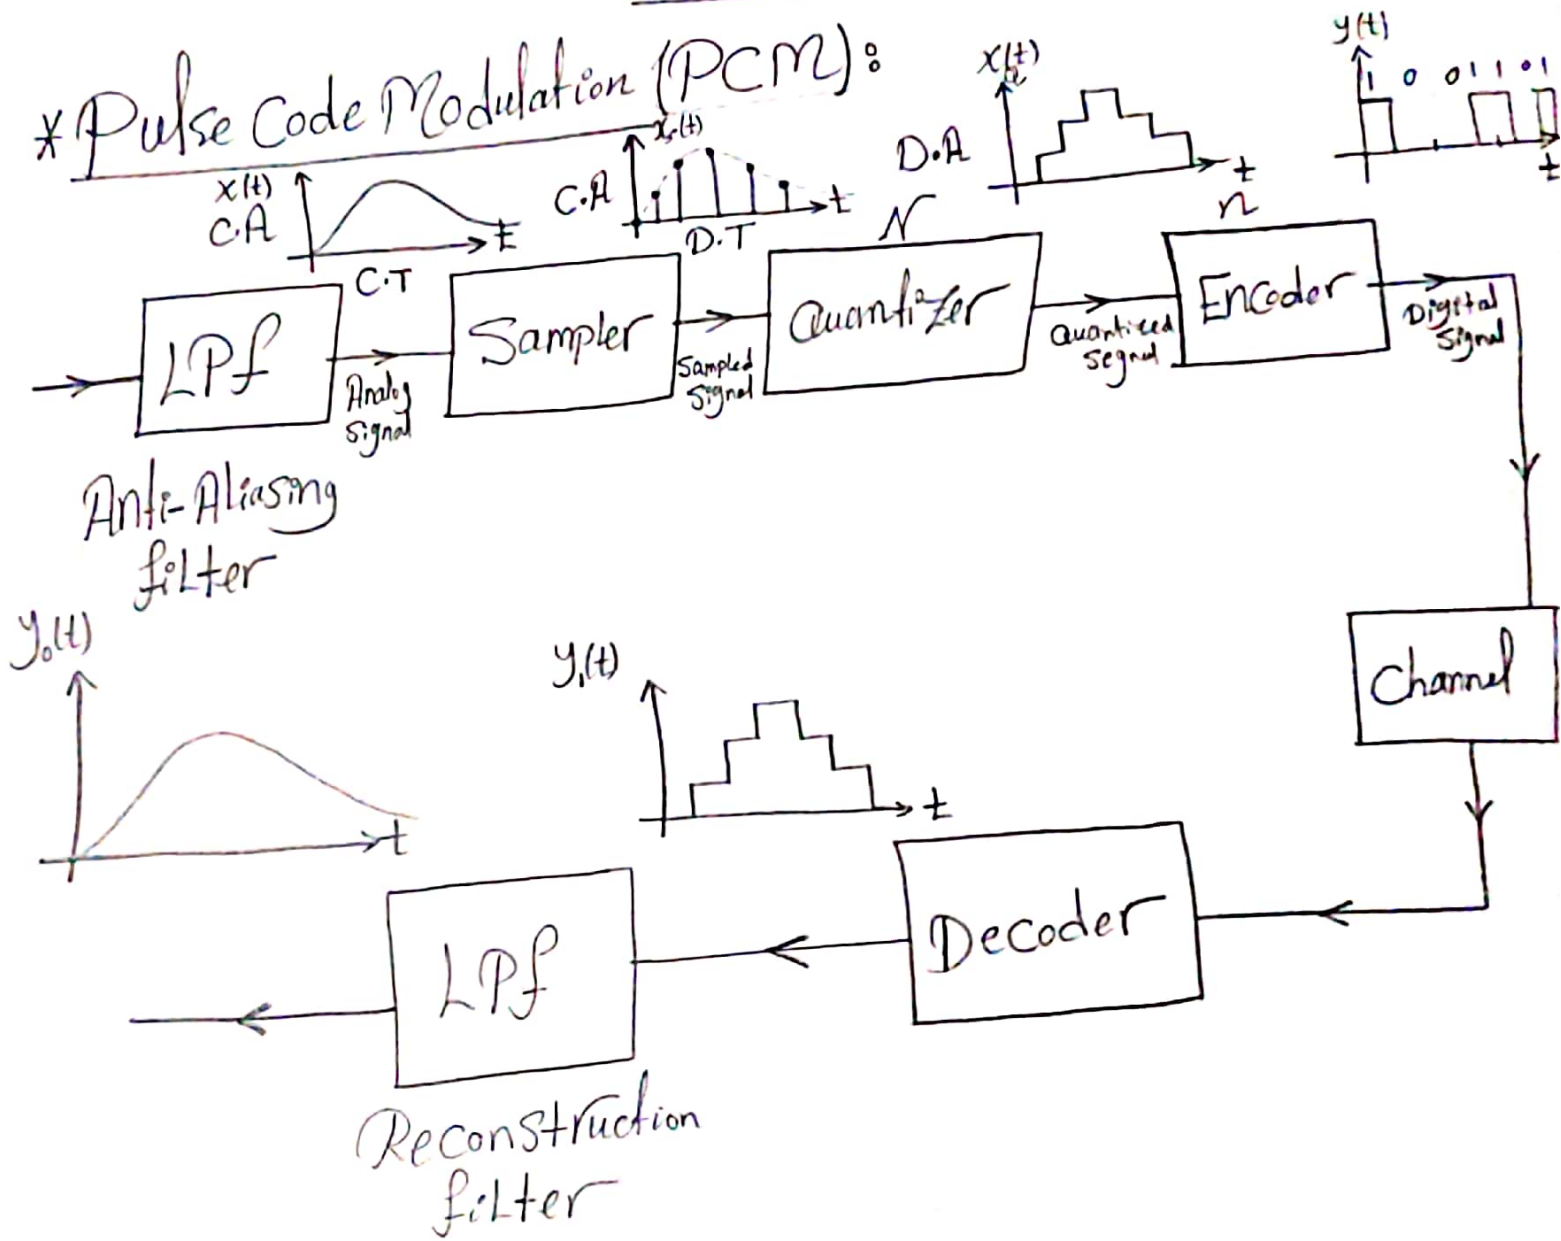 * Pulse Code Modulation (PCM):
x(t)
C.A
t
C.T
xs(t)
C.A
t
D.T
D.A
t
y(t)
1 0 0 1 1 0 1
t
N
n
LPf
Analog
Signal
Sampler
Sampled
Signal
Quantizer
Quantized
Segnal
Encoder
Digital
Signal
Anti-Aliasing
filter
Channel
y₀(t)
t
y₁(t)
t
Decoder
LPf
Reconstruction
filter